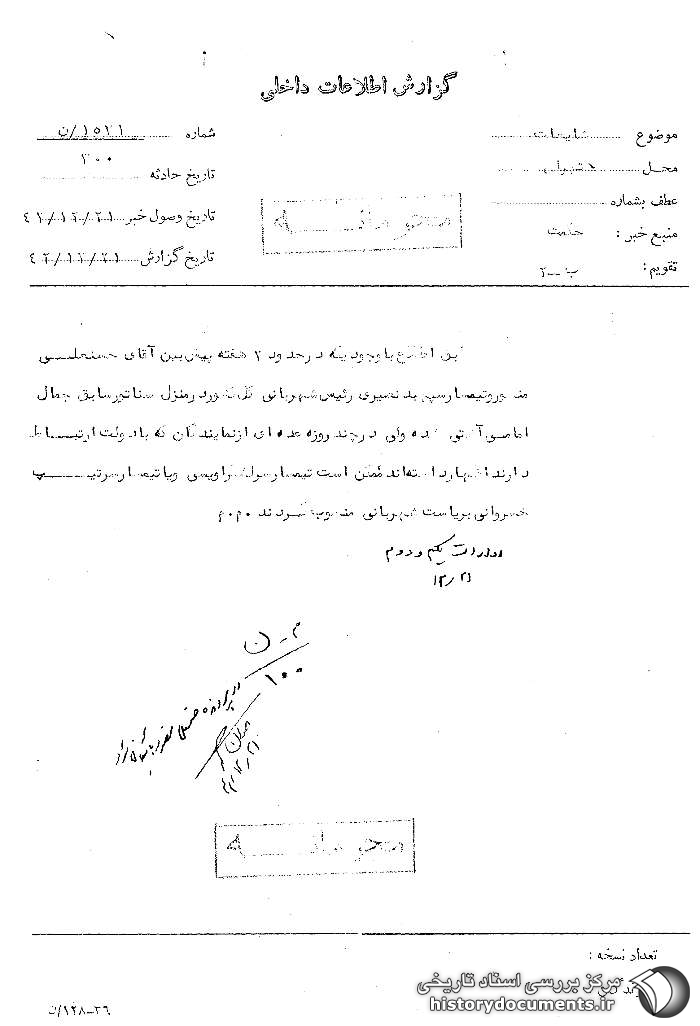 گزارش اطلاعات داخلی
موضوع شایعات
شماره ۱۵۲۱/ن
۳۰۰
محل
تاریخ حادثه
عطف بشماره
تاریخ وصول خبر ۴۲/۱۲/۲۱
منبع خبر :
تاریخ گزارش ۴۲/۱۲/۲۱
تقویم : ب-۲
محرمانه
این اطلاع باوجودیکه در حدود ۲ هفته پیش بین آقای حسنعلی
منصور و تیمسار سپهبد نصیری رئیس شهربانی کل کشور در منزل سناتور سابق جمال
امامی آشتی شده ولی در چند روزه عده ای از نمایندگان که با دولت ارتباط
دارند اظهار داشته‌اند ممکن است تیمسار سرلشکر اویسی و یا تیمسار سرتیپ
خسروانی بریاست شهربانی منصوب گردند م۰م
ادارات یکم و دوم
۱۲/۲۱
م - ن
۱۰۰
در پرونده
محرمانه
تعداد نسخه :
مرکز بررسی اسناد تاریخی
historydocuments.ir
۳۶-۱۲۸/ن